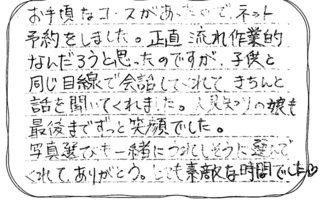 お手頃なコースがあったので、ネット
予約をしました。正直流れ作業的
なんだろうと思ったのですが、子供と
同じ目線で会話してくれて、きちんと
話を聞いてくれました。人見知りの娘も
最後までずっと笑顔でした。
写真選びも一緒にうれしそうに選んで
くれて、ありがとう。とても素敵な時間でした♡